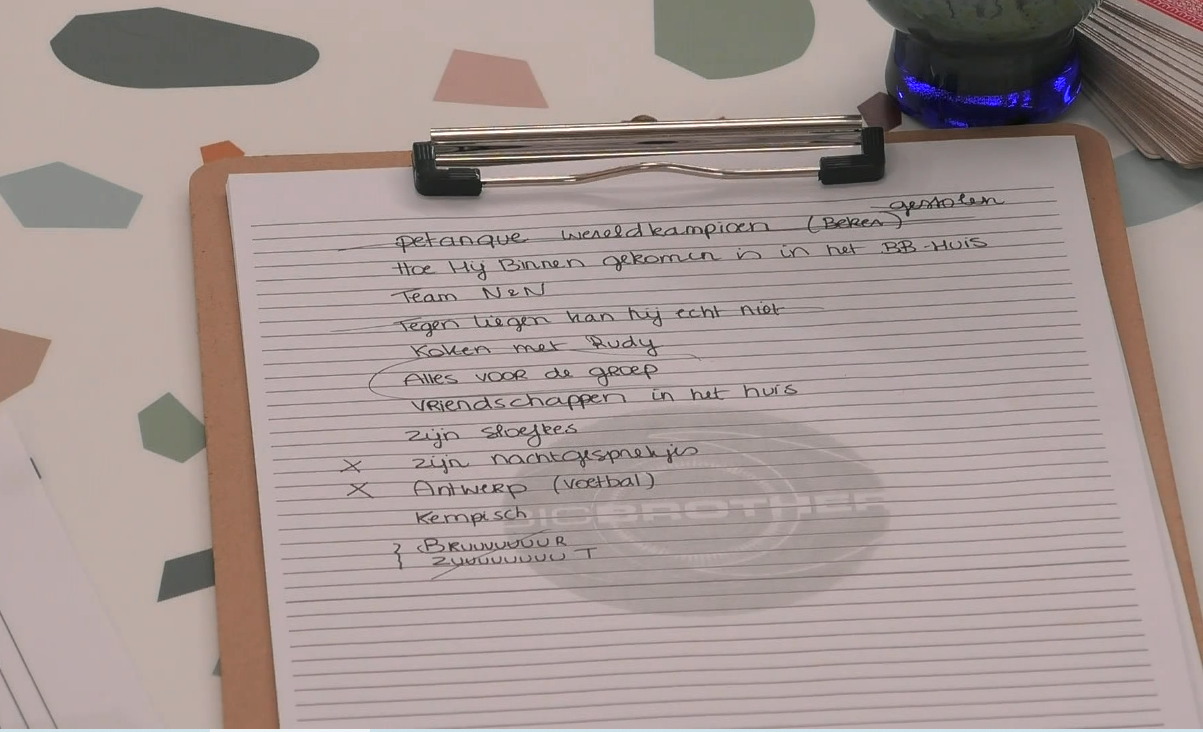 gestolen
petanque wereldkampioen (Beker)
Hoe Hij Binnen gekomen is in het BB-Huis
Team N&N
Tegen liegen kan hij echt niet
Koken met Rudy
Alles voor de groep
vriendschappen in het huis
zijn sloefkes
X zijn nachtgesprekjes
X Antwerp (voetbal)
Kempisch
BIG BROTHER
BRUUUUUUUR
ZUUUUUUUUU T